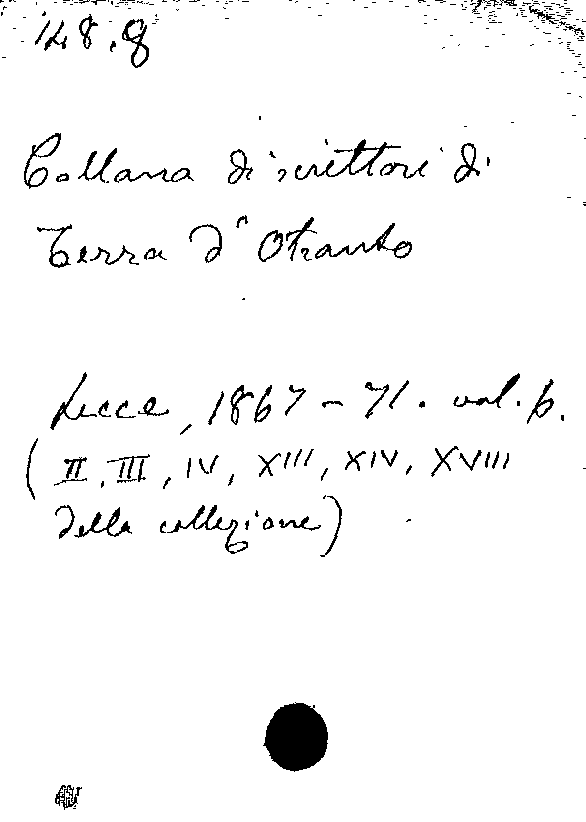 148.8
Collana di scrittori di
Terra d'Otranto
Lecce, 1867-71. vol. p.
(II, III, IV, XIII, XIV, XVIII
della collezione)